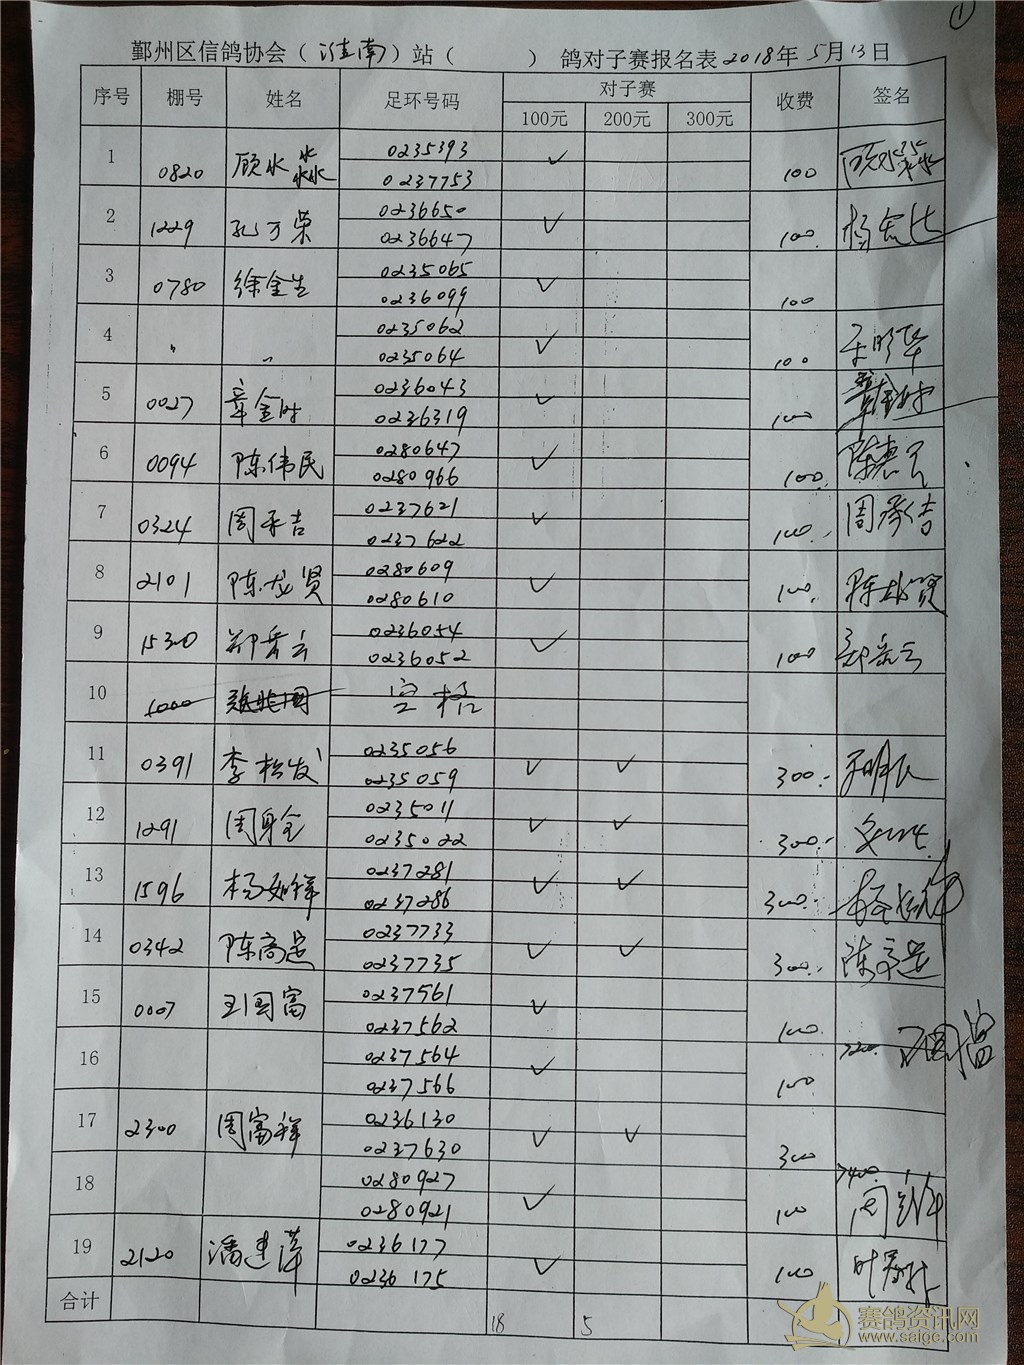 ①
鄞州区信鸽协会（淮南）站（ ）鸽对子赛报名表2018年5月13日
序号 棚号 姓名 足环号码 对子赛 收费 签名
100元 200元 300元
1 0820 顾水淼 0235393 ✓ 100
0237753
2 1229 孔万荣 0236650 ✓ 100.
0236647
3 0780 徐金生 0235065 ✓ 100
0236099
4 〃 〃 0235062 ✓ 100
0235064
5 0027 章金时 0236043 ✓ 100 章金时
0236319
6 0094 陈伟民 0280647 ✓ 100.
0280966
7 0324 周承吉 0237621 ✓ 100. 周承吉
0237622
8 2101 陈龙贤 0280609 ✓ 100.
0280610
9 1530 郑岳云 0236054 ✓ 100 郑岳云
0236052
10 1000 空格
11 0391 李松发 0235056 ✓ ✓ 300.
0235059
12 1291 周身全 0235011 ✓ ✓ 300.
0235022
13 1596 杨如祥 0237281 ✓ ✓ 300.
0237286
14 0342 陈高定 0237733 ✓ ✓ 300. 陈高定
0237735
15 0007 王国富 0237561 ✓ 100
0237562
王国富
16 0237564 ✓ 100
0237566
17 2300 周富祥 0236130 ✓ ✓ 300
0237630
18 0280927 ✓ 100
0280921
19 2120 潘建萍 0236177 ✓ 100
0236175
合计 18 5
赛鸽资讯网
www.saige.com